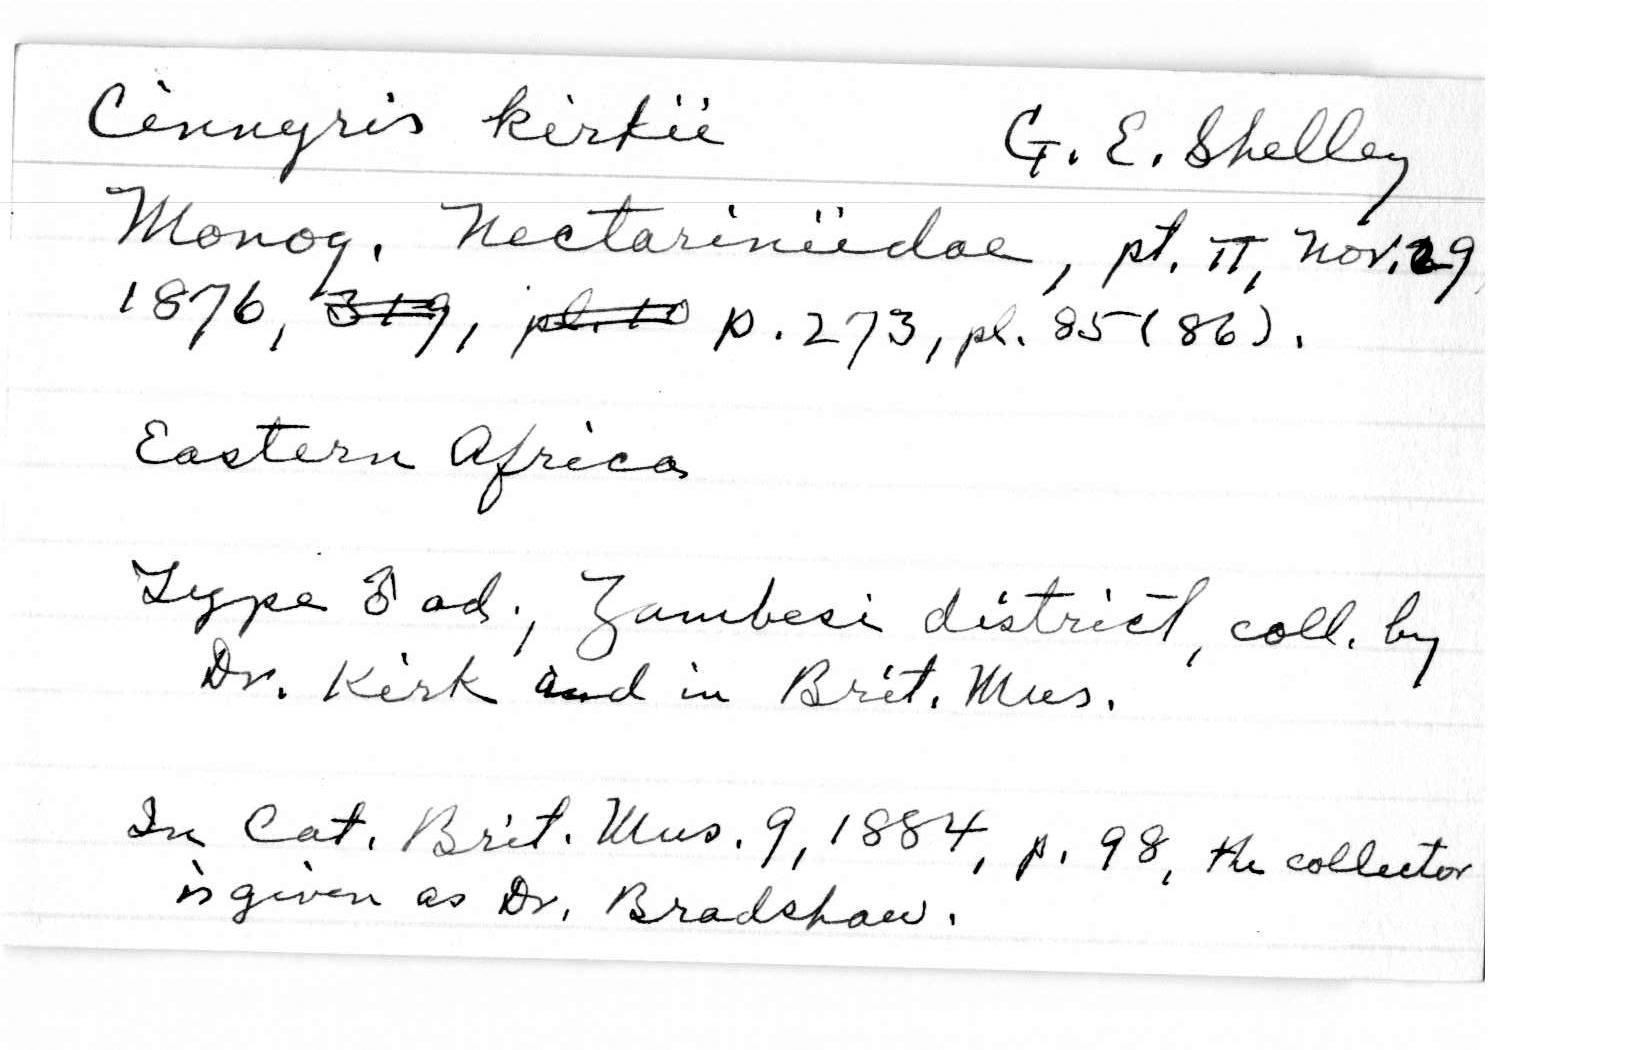 Cinnyris kirkii G. E. Shelley
Monog. Nectariniidae, pt. II, Nov. 29
1876, 319, pl. 10 p. 273, pl. 85 (86).
Eastern Africa
Type ♂ ad; Zambesi district, coll. by
Dr. Kirk and in Brit. Mus.
In Cat. Brit. Mus. 9, 1884, p. 98, the collector
is given as Dr. Bradshaw.